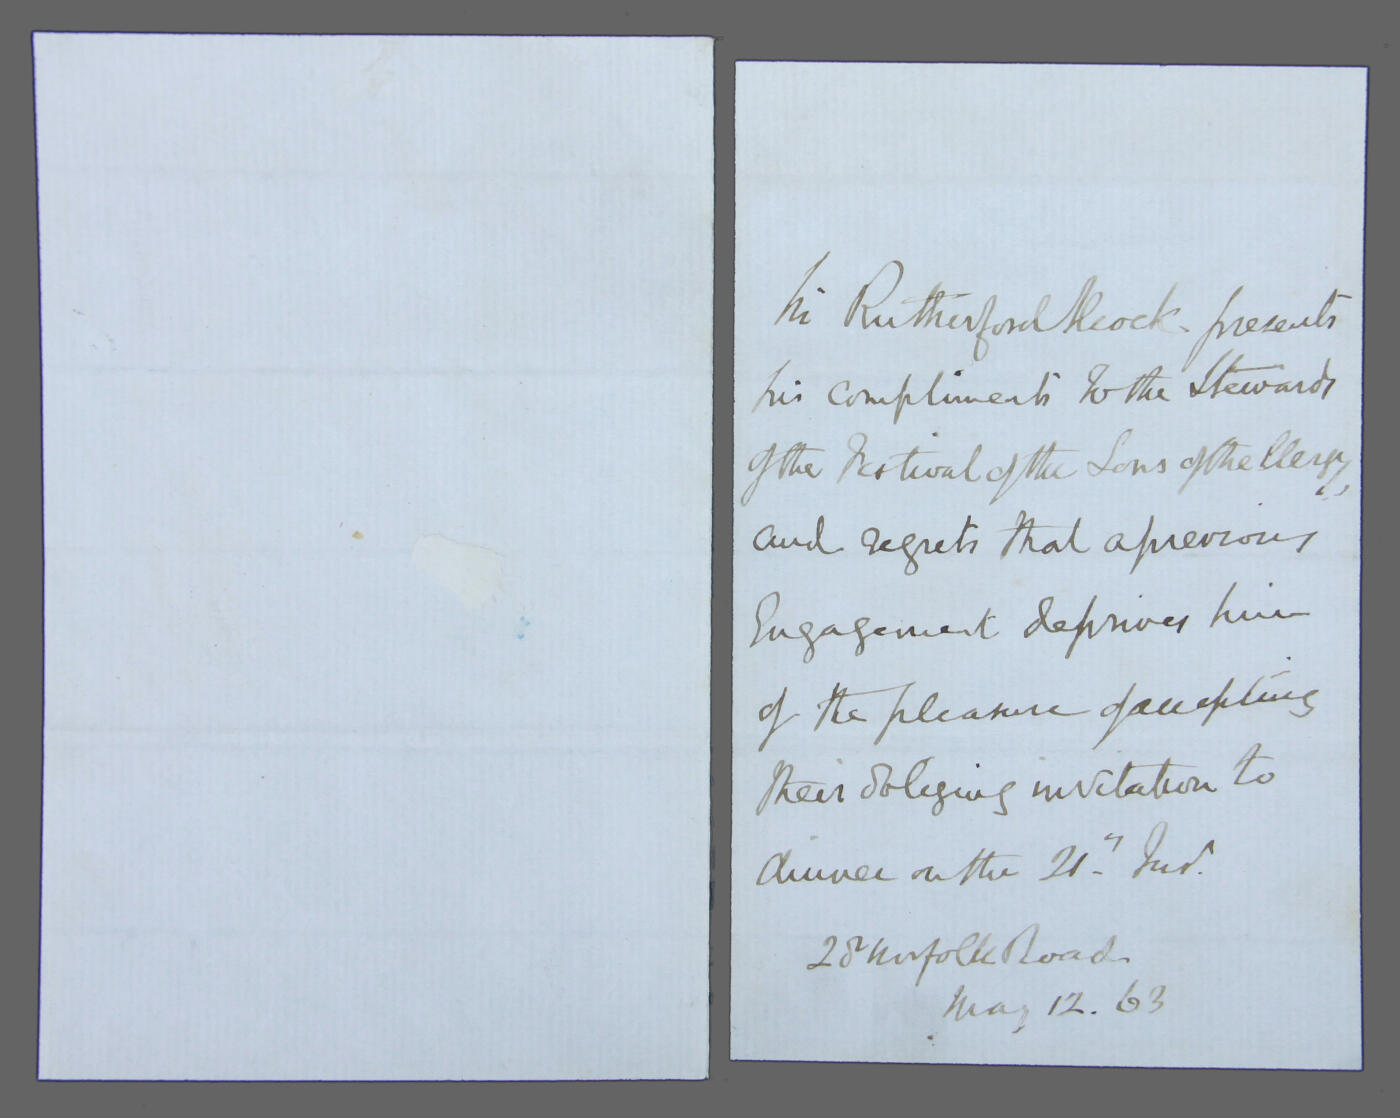 Sir Rutherford Alcock presents
his compliments to the Stewards
of the Festival of the Sons of the Clergy,
and regrets that a previous
Engagement deprives him
of the pleasure of accepting
their obliging invitation to
dinner on the 21st Inst.
28 Norfolk Road
May 12. 63